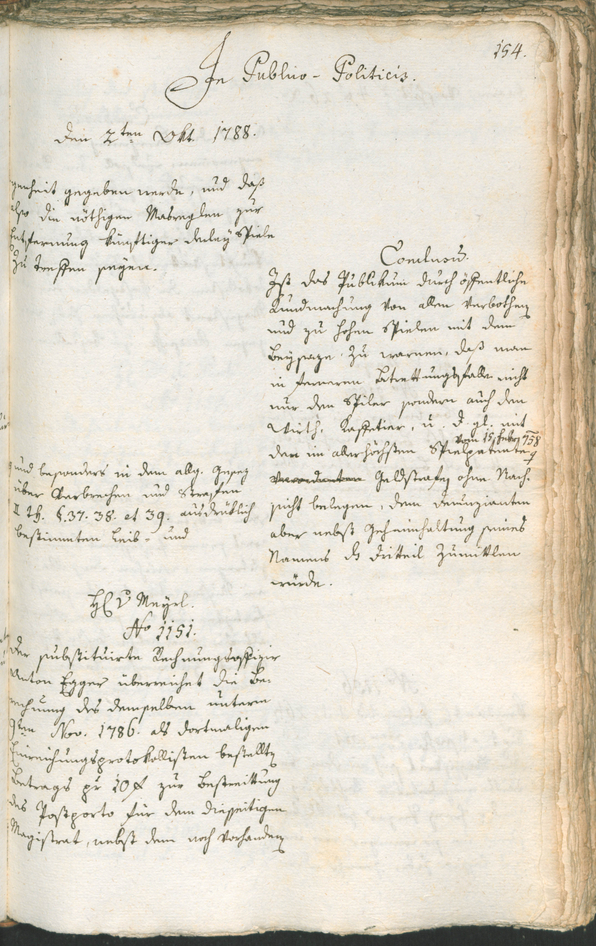 154.
In Publico-Politicis.
Den 2ten Okt. 1788.
genheit gegeben werde, und daß
also die nöthigen Masreglen zur
Entfernung künftiger derley Spiele
zu treffen seyen.
Conclusum
Ist das Publikum durch öffentliche
Kundmachung von allen verbothen
und zu hohen Spielen mit dem
Beysaze zu warnen, daß man
in ferneren Betrettungsfalle nicht
nur den Spiler sondern auch den
Wirth, Kaffetier, u. d. gl. mit
vom 15. Febr 758
den im allerhöchsten Spielpatente
Geldstrafen ohne Nach-
sicht belegen, dem Denunzianten
aber nebst Geheimhaltung seines
Namens Dritteil zumitlen
würde.
und besonders in dem allg. Gesez
über Verbrechen und Strafen
II th. §. 37. 38. et 39. ausdrüklich
bestimmten Leib- und
H v Meyrl.
No 1151.
Der substituirte Rechnungsoffizir
Anton Egger überreichet die Be-
rechnung des demselben unterm
9ten Nov. 1786. als dortmaligen
Einreichungsprotokollisten bestellt
Betrags pr 10 f zur Bestreittung
des Postporto für den diesseitigen
Magistrat, nebst dem noch vorhanden